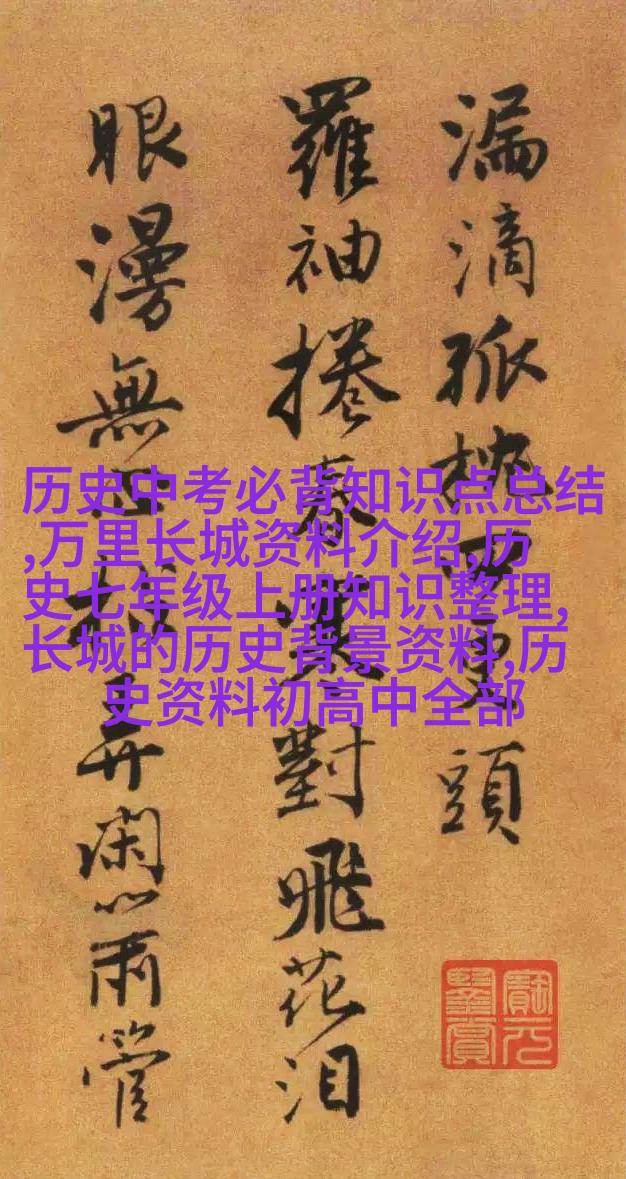 漏滴孤更頭
羅袖捲寒對飛花泪
眼漫無開闲管
历史中考必背知识点总结
,万里长城资料介绍,历
史七年级上册知识整理,
长城的历史背景资料,历
史资料初高中全部